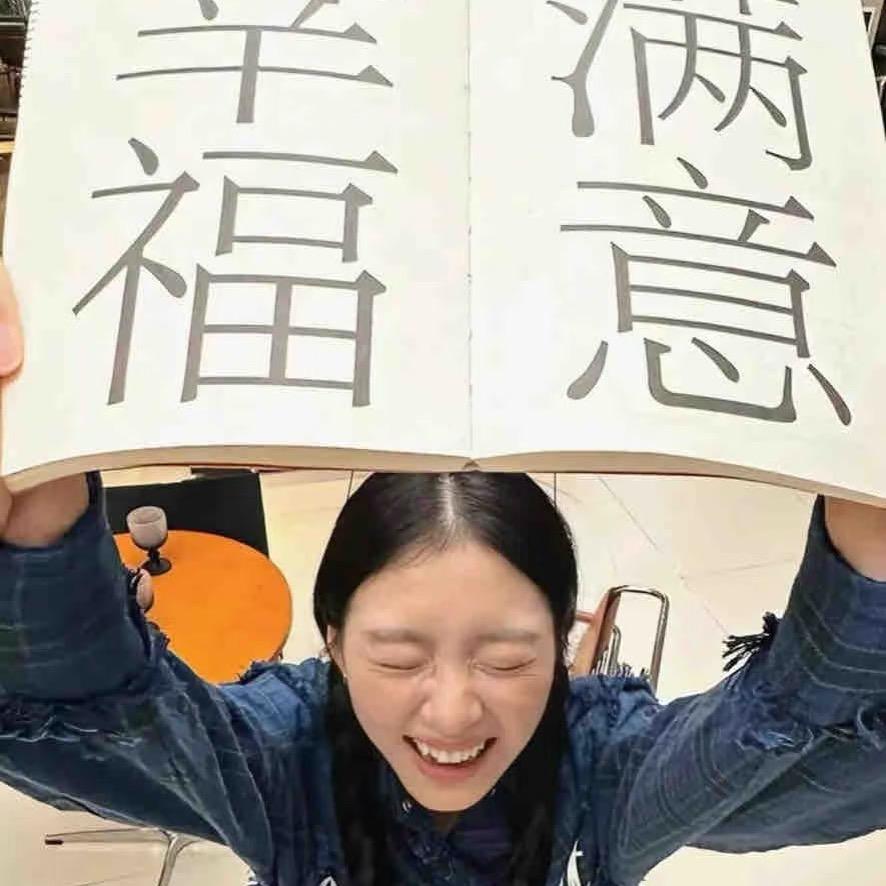 幸福
满意